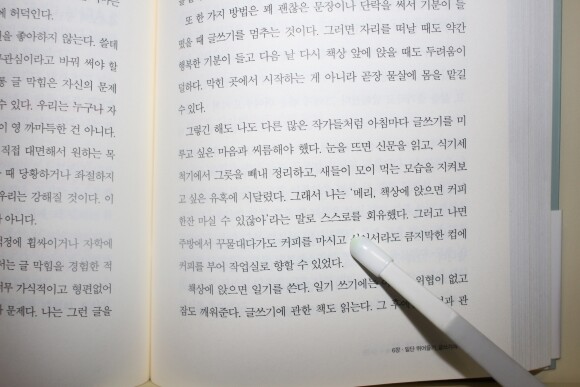 에 허덕인다.
을 좋아하지 않는다. 쓸데
무관심이라고 바꿔 써야 할
통 글 막힘은 자신의 문제
수 있다. 우리는 누구나 자
이 영 까마득한 건 아니다.
직접 대면해서 원하는 목
때 당황하거나 좌절하지
우리는 강해질 것이다. 이
아니다.
걱정에 휩싸이거나 자학에
서는 글 막힘을 경험한 적
너무 가식적이고 형편없어
문제다. 나는 그런 글을
또 한 가지 방법은 꽤 괜찮은 문장이나 단락을 써서 기분이 들
떴을 때 글쓰기를 멈추는 것이다. 그러면 자리를 떠날 때도 약간
행복한 기분이 들고 다음 날 다시 책상 앞에 앉을 때도 두려움이
덜하다. 막힌 곳에서 시작하는 게 아니라 곧장 물살에 몸을 맡길
수 있다.
그렇긴 해도 나도 다른 많은 작가들처럼 아침마다 글쓰기를 미
루고 싶은 마음과 씨름해야 했다. 눈을 뜨면 신문을 읽고, 식기세
척기에서 그릇을 빼내 정리하고, 새들이 모이 먹는 모습을 지켜보
고 싶은 유혹에 시달렸다. 그래서 나는 ‘메리, 책상에 앉으면 커피
한잔 마실 수 있잖아’라는 말로 스스로를 회유했다. 그러고 나면
주방에서 꾸물대다가도 커피를 마시고 싶어서라도 큼지막한 컵에
커피를 부어 작업실로 향할 수 있었다.
책상에 앉으면 일기를 쓴다. 일기 쓰기에는 위험이 없고
잠도 깨워준다. 글쓰기에 관한 책도 읽는다. 그 관
6장 · 일단 뛰어들